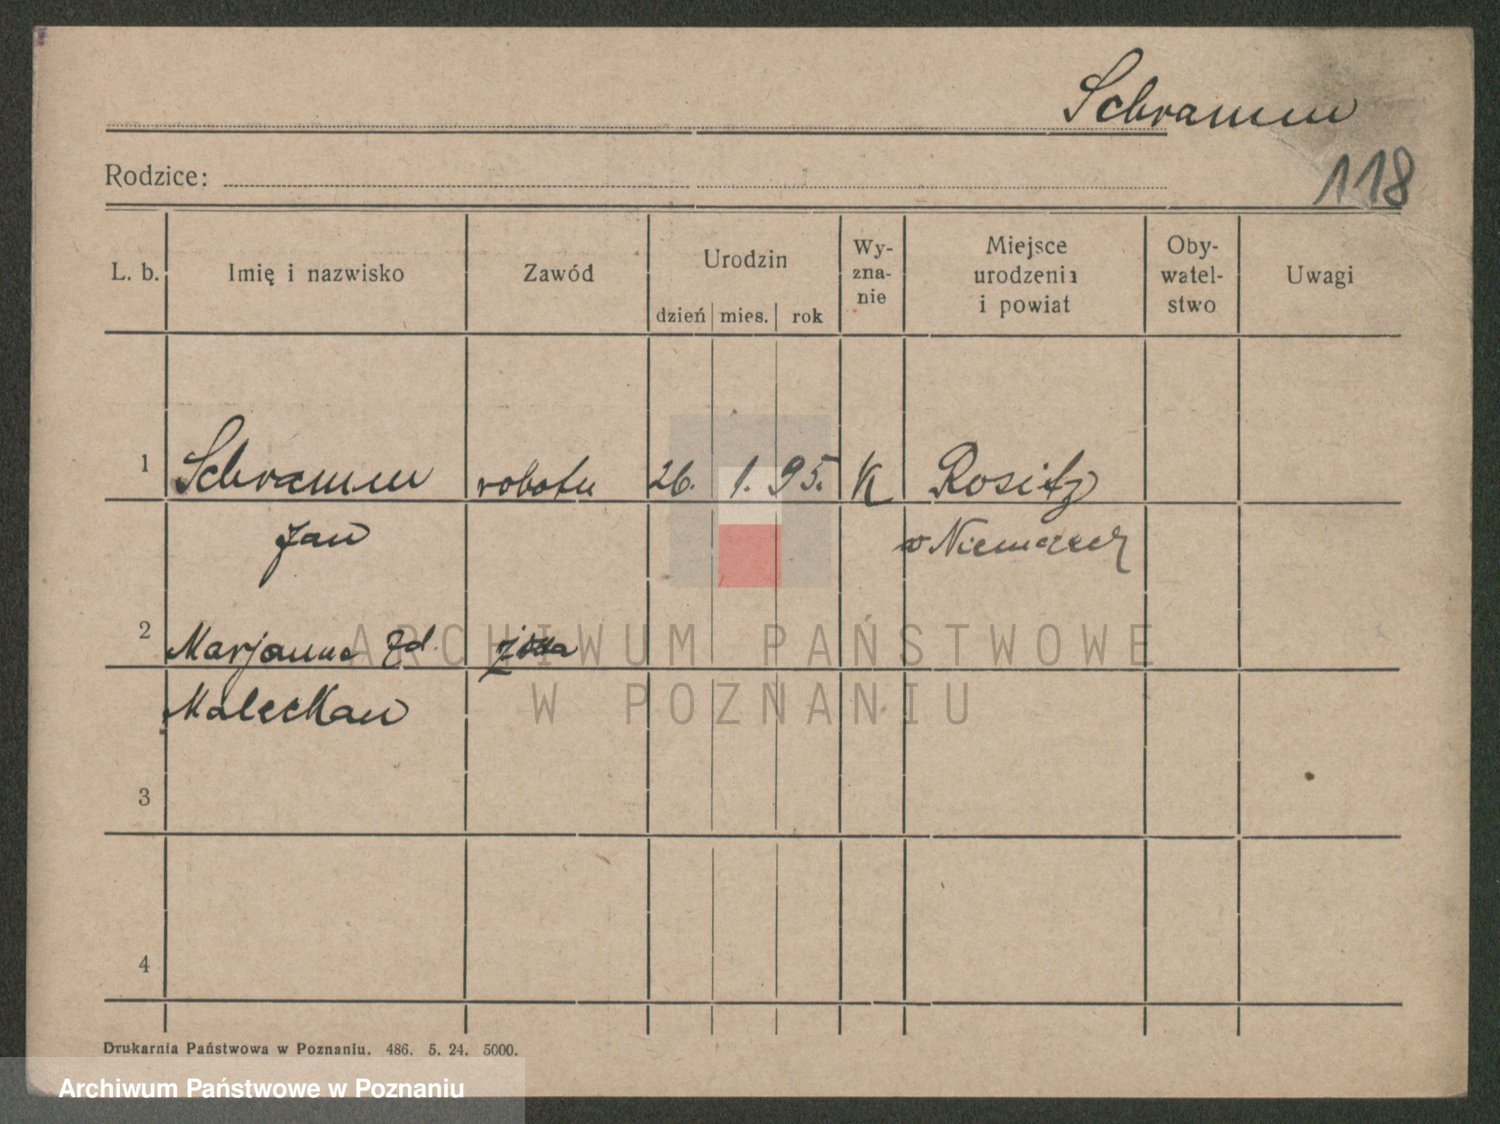 Schramm
118
Rodzice:
L. b. Imię i nazwisko Zawód Urodzin dzień mies. rok Wy-zna-nie Miejsce urodzenia i powiat Oby-watel-stwo Uwagi
1 Schramm robotn 26. 1. 95. K Rositz
Jan w Niemczech
2 Marjanna Zd. żona
Maleckan
3
4
Drukarnia Państwowa w Poznaniu. 486. 5. 24. 5000.
ARCHIWUM PAŃSTWOWE
W POZNANIU
Archiwum Państwowe w Poznaniu